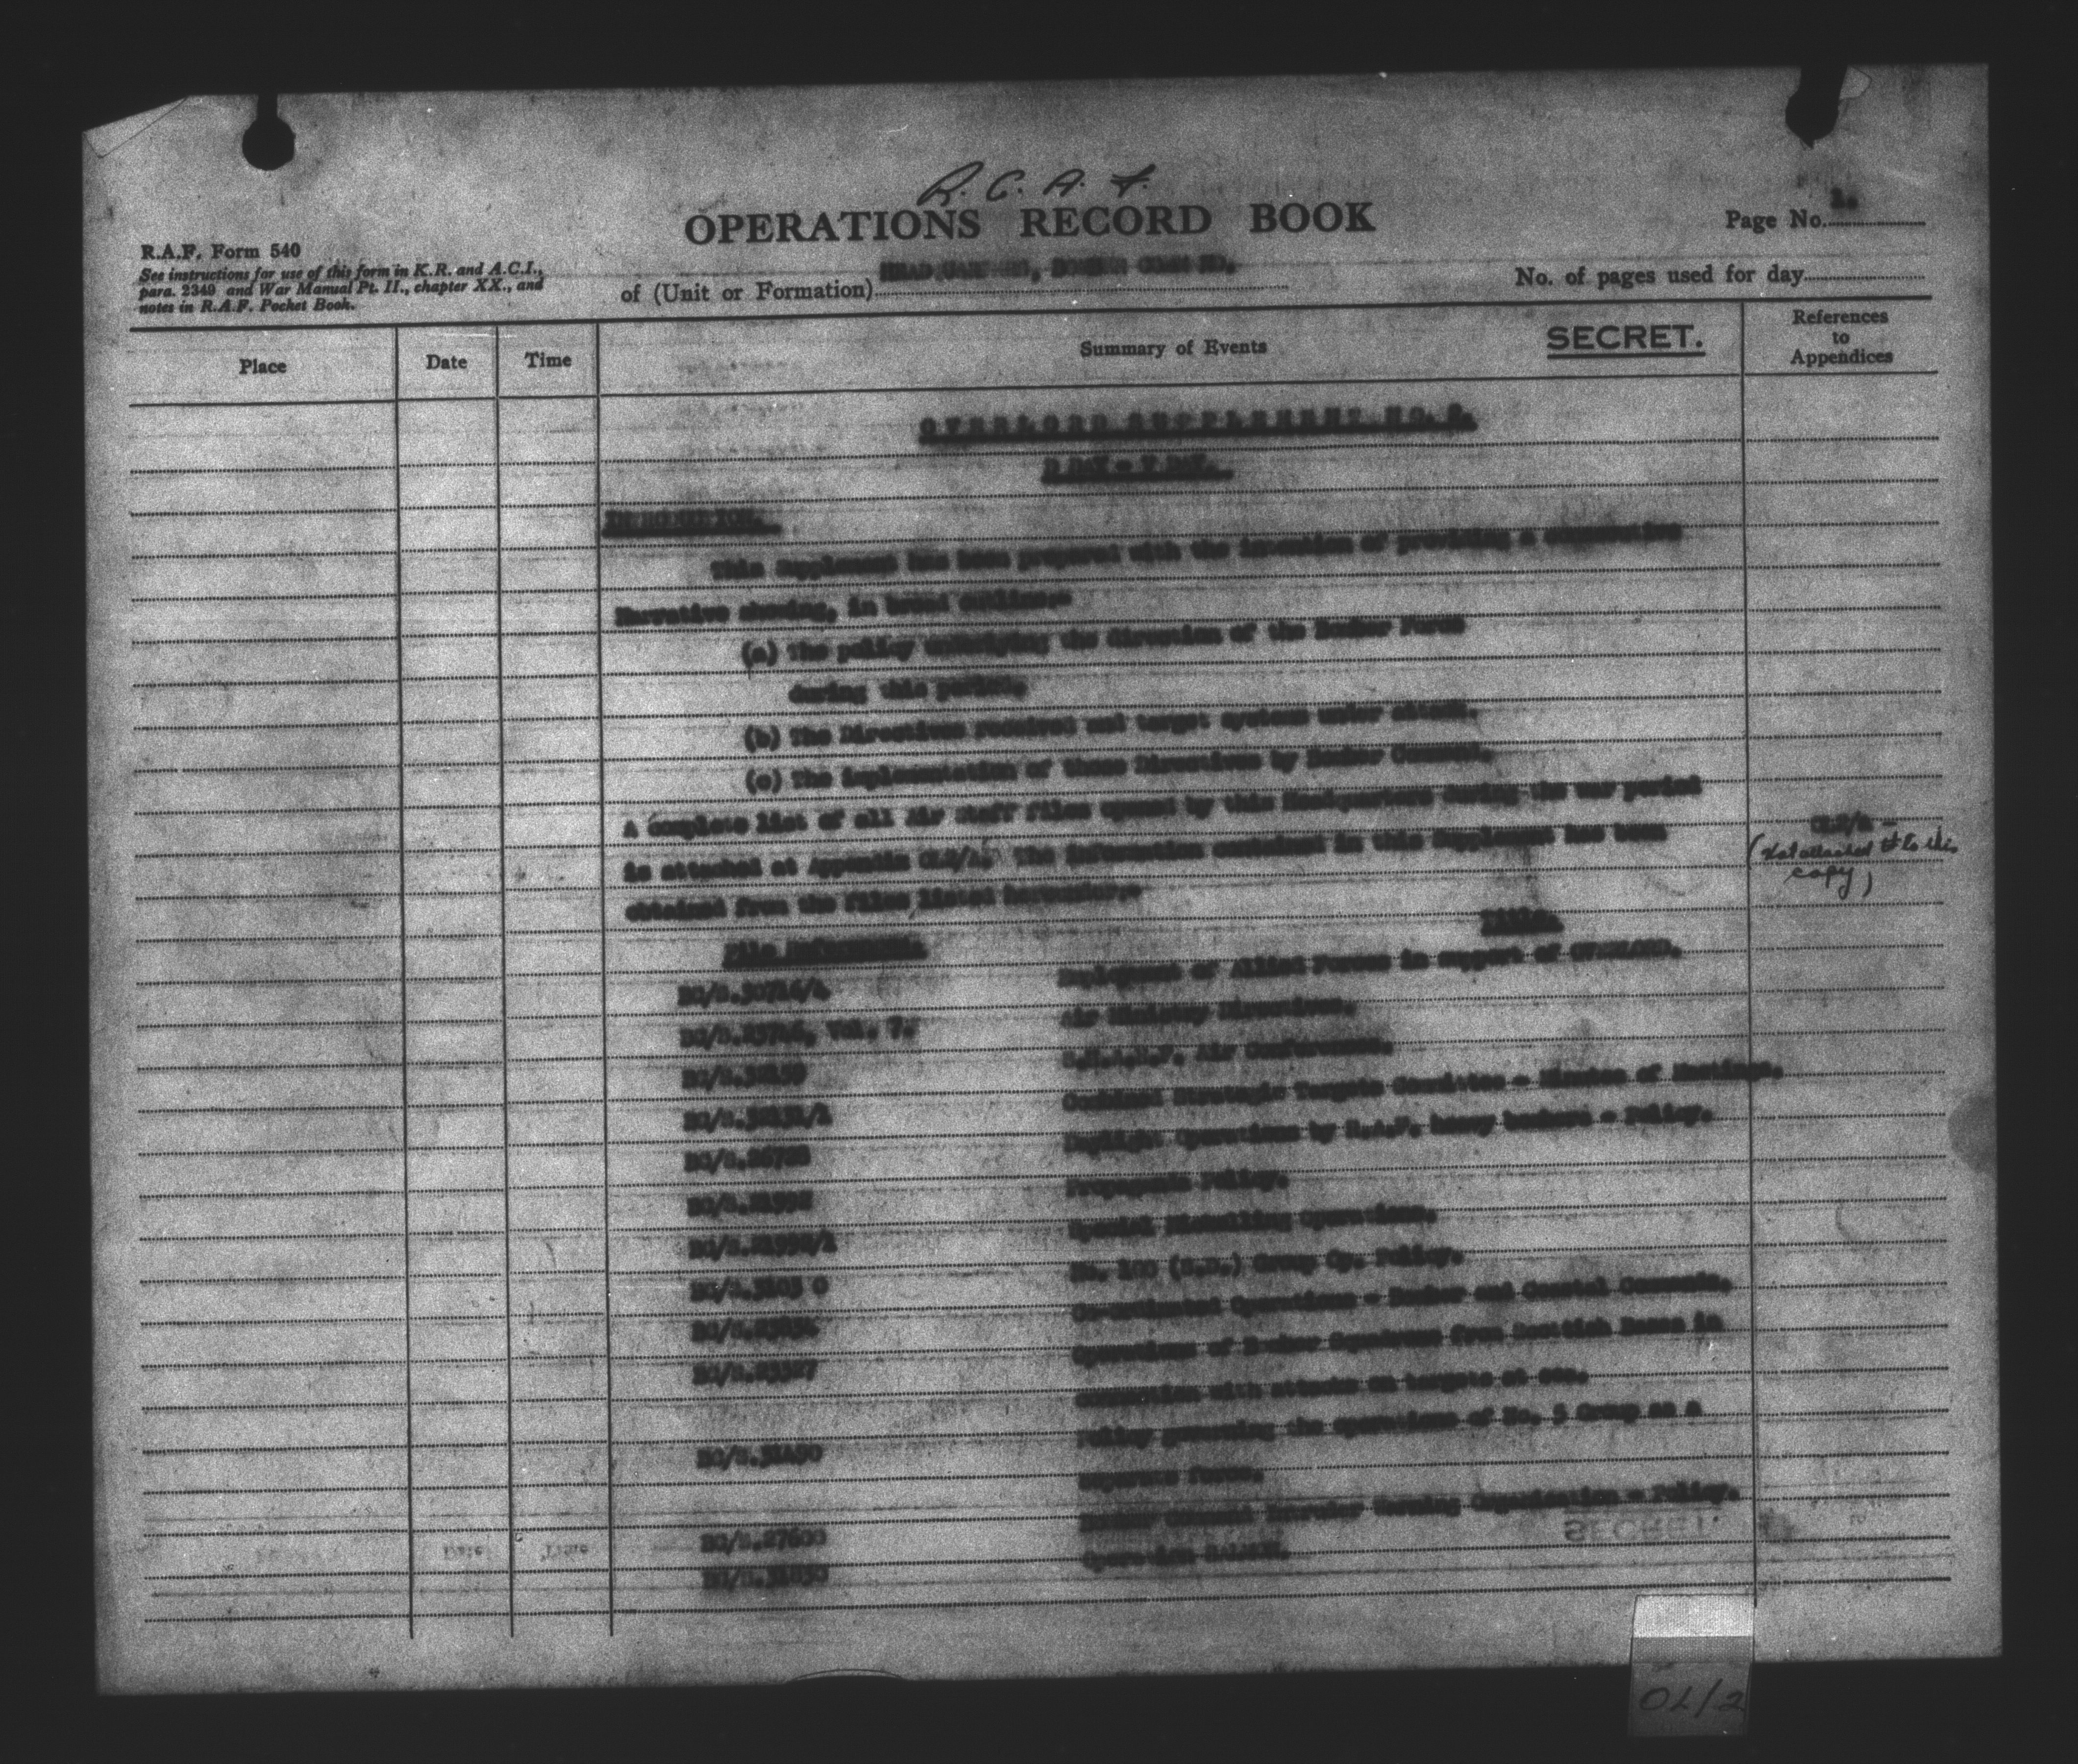 R. C. A. F.
OPERATIONS RECORD BOOK
Page No. 1.
R.A.F. Form 540
See instructions for use of this form in K.R. and A.C.I.,
para. 2349 and War Manual Pt. II., chapter XX., and
notes in R.A.F. Pocket Book.
of (Unit or Formation) HEADQUARTERS, BOMBER COMMAND.
No. of pages used for day
Place
Date
Time
Summary of Events
SECRET.
References
to
Appendices
OVERLORD SUPPLEMENT NO. 2.
D DAY - V DAY.
INTRODUCTION.
This Supplement has been prepared with the intention of providing a
Narrative showing, in broad outline:-
(a) The policy underlying the direction of the Bomber Force
during this period.
(b) The Directives received and target systems under attack.
(c) The implementation of these Directives by Bomber Command.
A complete list of all Air Staff files opened by this Headquarters during the war period
is attached at Appendix OL2/A. The information contained in this Supplement has been
obtained from the files listed hereunder:-
OL2/A -
(Not attached to this
copy)
File Reference.
Title.
BC/S.30716/4
Employment of Allied Forces in support of OVERLORD.
BC/S.23746, Vol. 7.
Air Ministry Directives.
S.H.A.E.F. Air Conferences.
BC/S.32131/1
Combined Strategic Targets Committee - Minutes of Meetings.
BC/S.26728
Daylight Operations by R.A.F. heavy bombers - Policy.
Propaganda Policy.
Special Nickelling Operations.
No. 100 (S.D.) Group Cy. Policy.
Co-ordinated Operations - Bomber and Coastal Commands.
BC/S.23327
Operations of Bomber Squadrons from Scottish Bases in
connection with attacks on targets at sea.
BC/S.31490
Policy governing the operations of No. 5 Group as a
separate force.
BC/S.27600
Bomber Command Intruder Warning Organisation - Policy.
Operation
SECRET.
Date
Time
OL/2